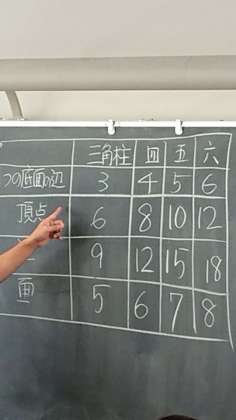 三角柱 四 五 六
つの底面の辺 3 4 5 6
頂点 6 8 10 12
9 12 15 18
面 5 6 7 8